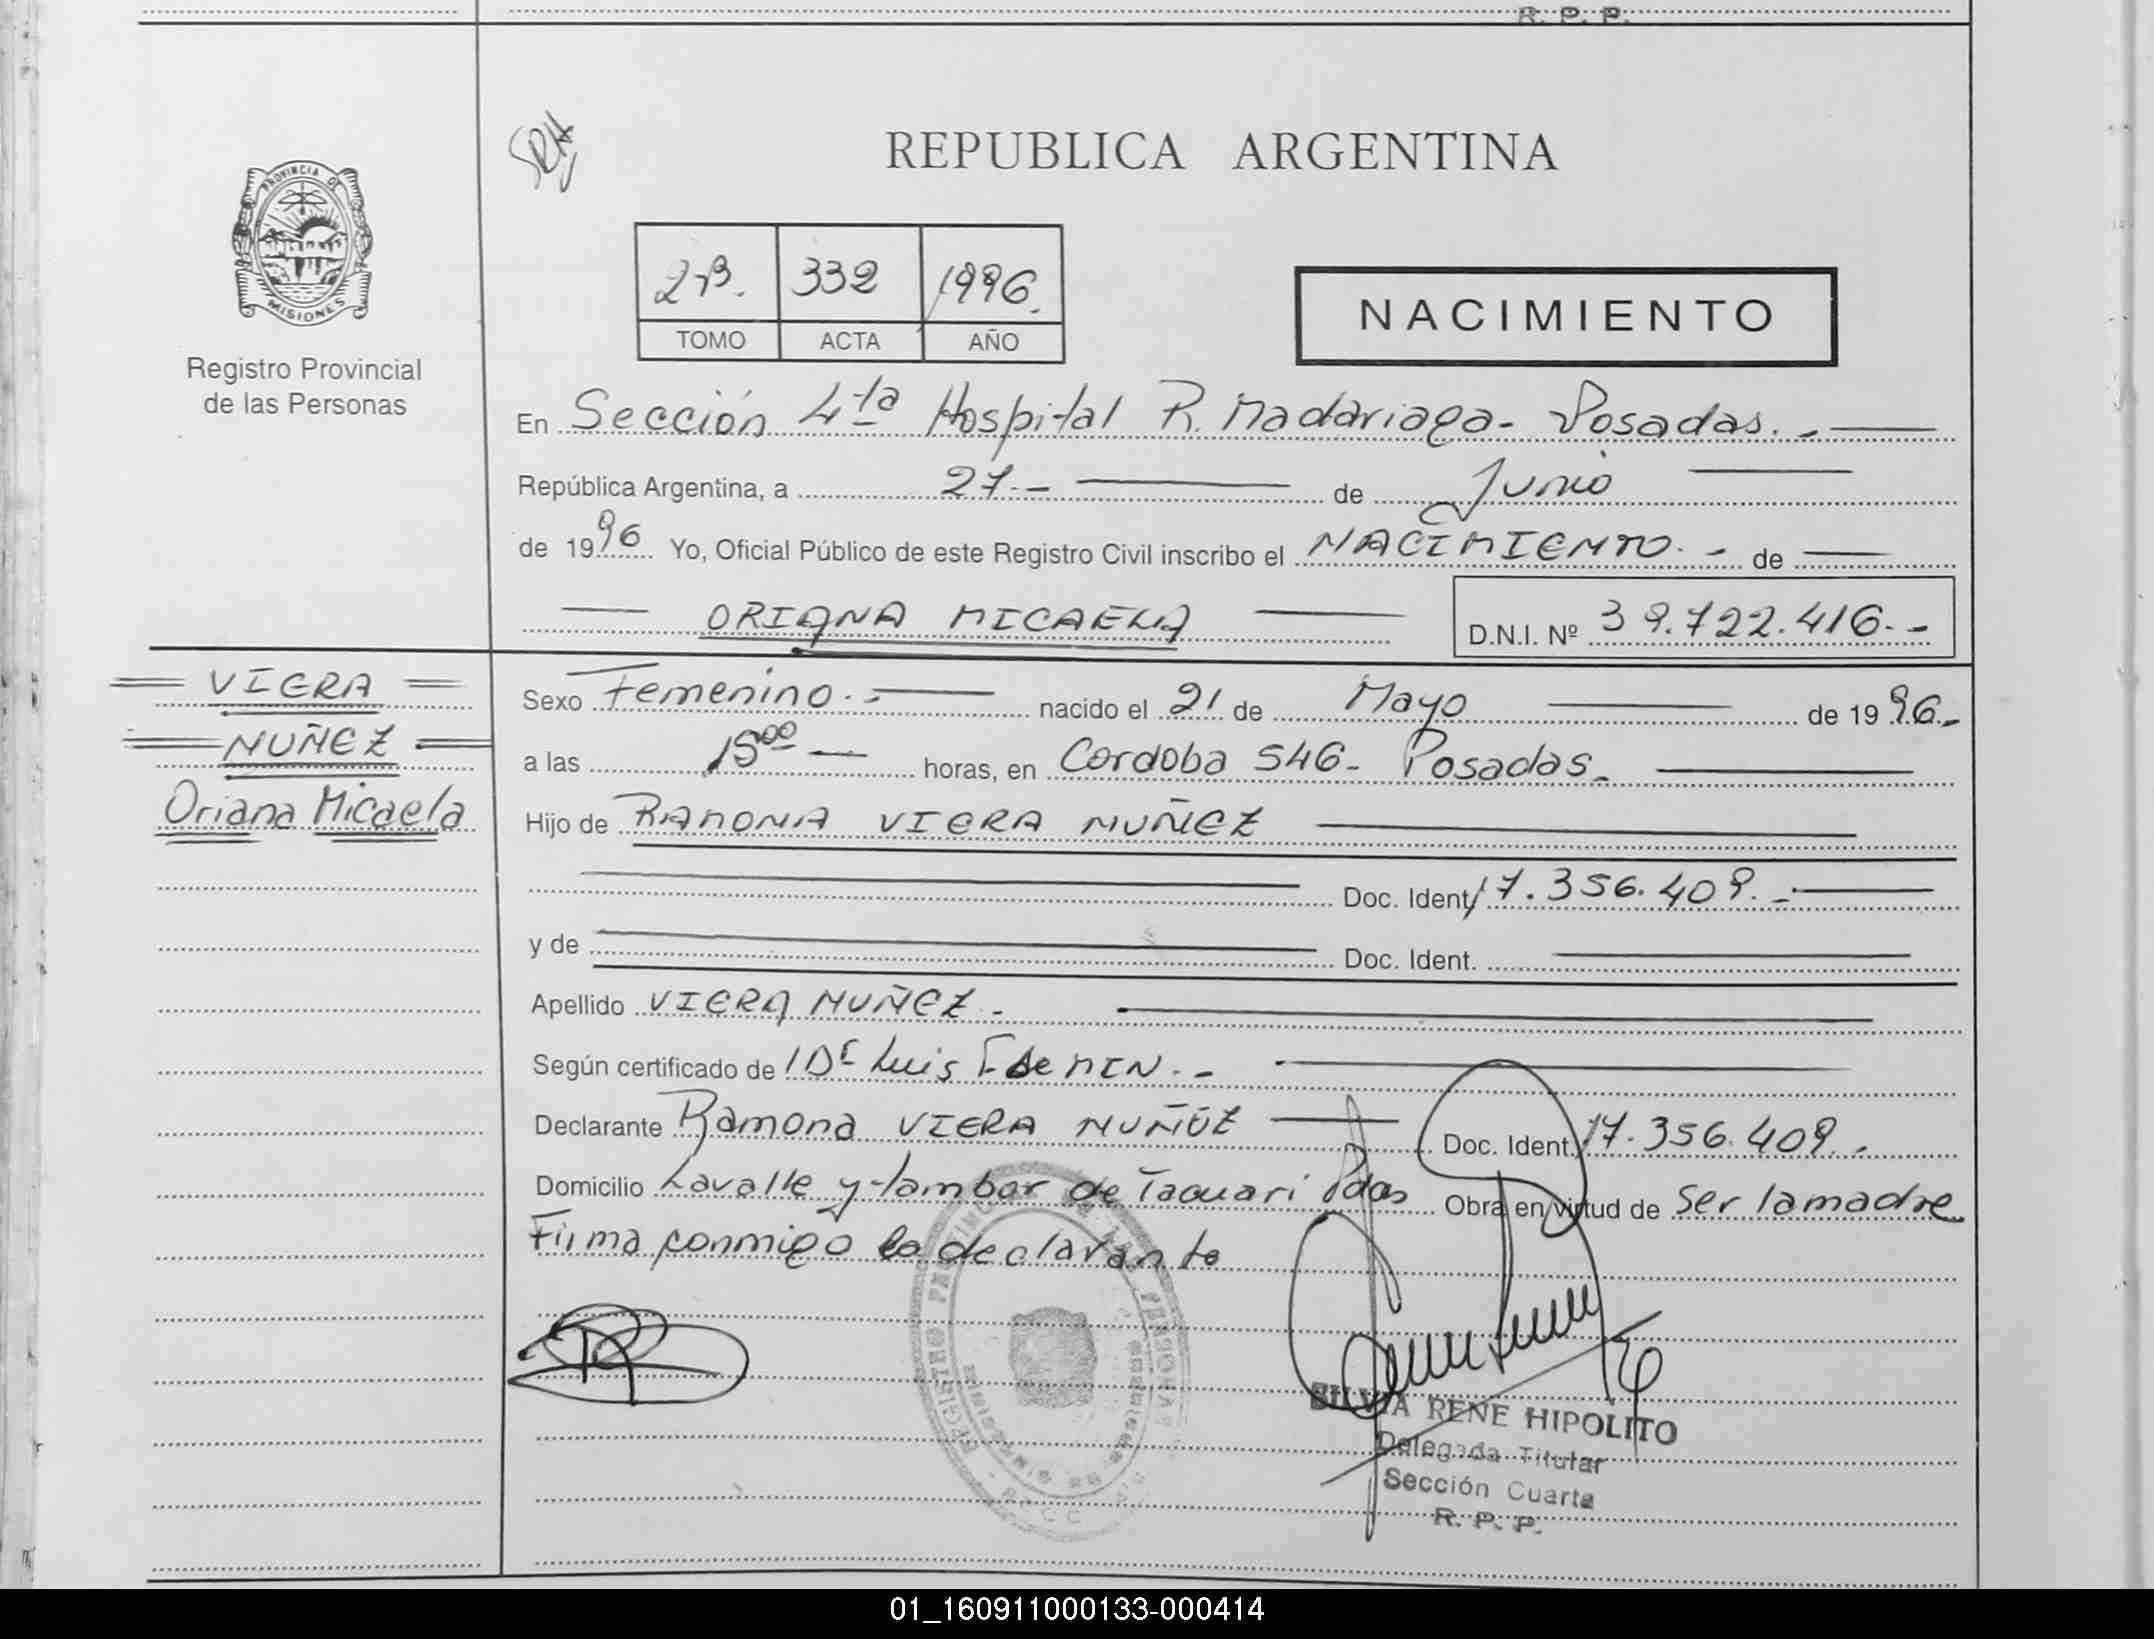 R. P. P.
PROVINCIA DE
MISIONES
Registro Provincial
de las Personas
REPUBLICA ARGENTINA
332 1996
TOMO ACTA AÑO
NACIMIENTO
En Sección 4ta Hospital R. Madariaga - Posadas. -
República Argentina, a 27.- de Junio
de 1996 Yo, Oficial Público de este Registro Civil inscribo el NACIMIENTO. - de
ORIANA MICAELA
D.N.I. Nº 39.722.416.-
VIERA
NUÑEZ
Oriana Micaela
Sexo Femenino.- nacido el 21 de Mayo de 1996.-
a las 15⁰⁰ horas, en Cordoba 546- Posadas.
Hijo de RAMONA VIERA NUÑEZ
Doc. Ident. 17.356.409.-
y de Doc. Ident.
Apellido VIERA NUÑEZ.-
Según certificado de Dr Luis
Declarante Ramona VIERA NUÑEZ Doc. Ident. 17.356.409.-
Domicilio Lavalle y tambor de Tacuari Pdas Obra en virtud de Ser la madre
Firma conmigo la declarante
SILVIA RENE HIPOLITO
Delegada Titular
Sección Cuarta
R. P. P.
01_160911000133-000414